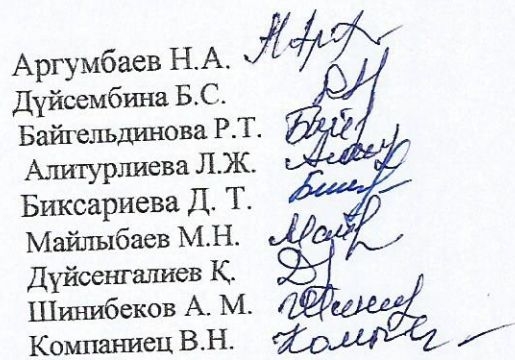 Аргумбаев Н.А.
Дүйсембина Б.С.
Байгельдинова Р.Т.
Алитурлиева Л.Ж.
Биксариева Д. Т.
Майлыбаев М.Н.
Дүйсенгалиев Қ.
Шинибеков А. М.
Компаниец В.Н.